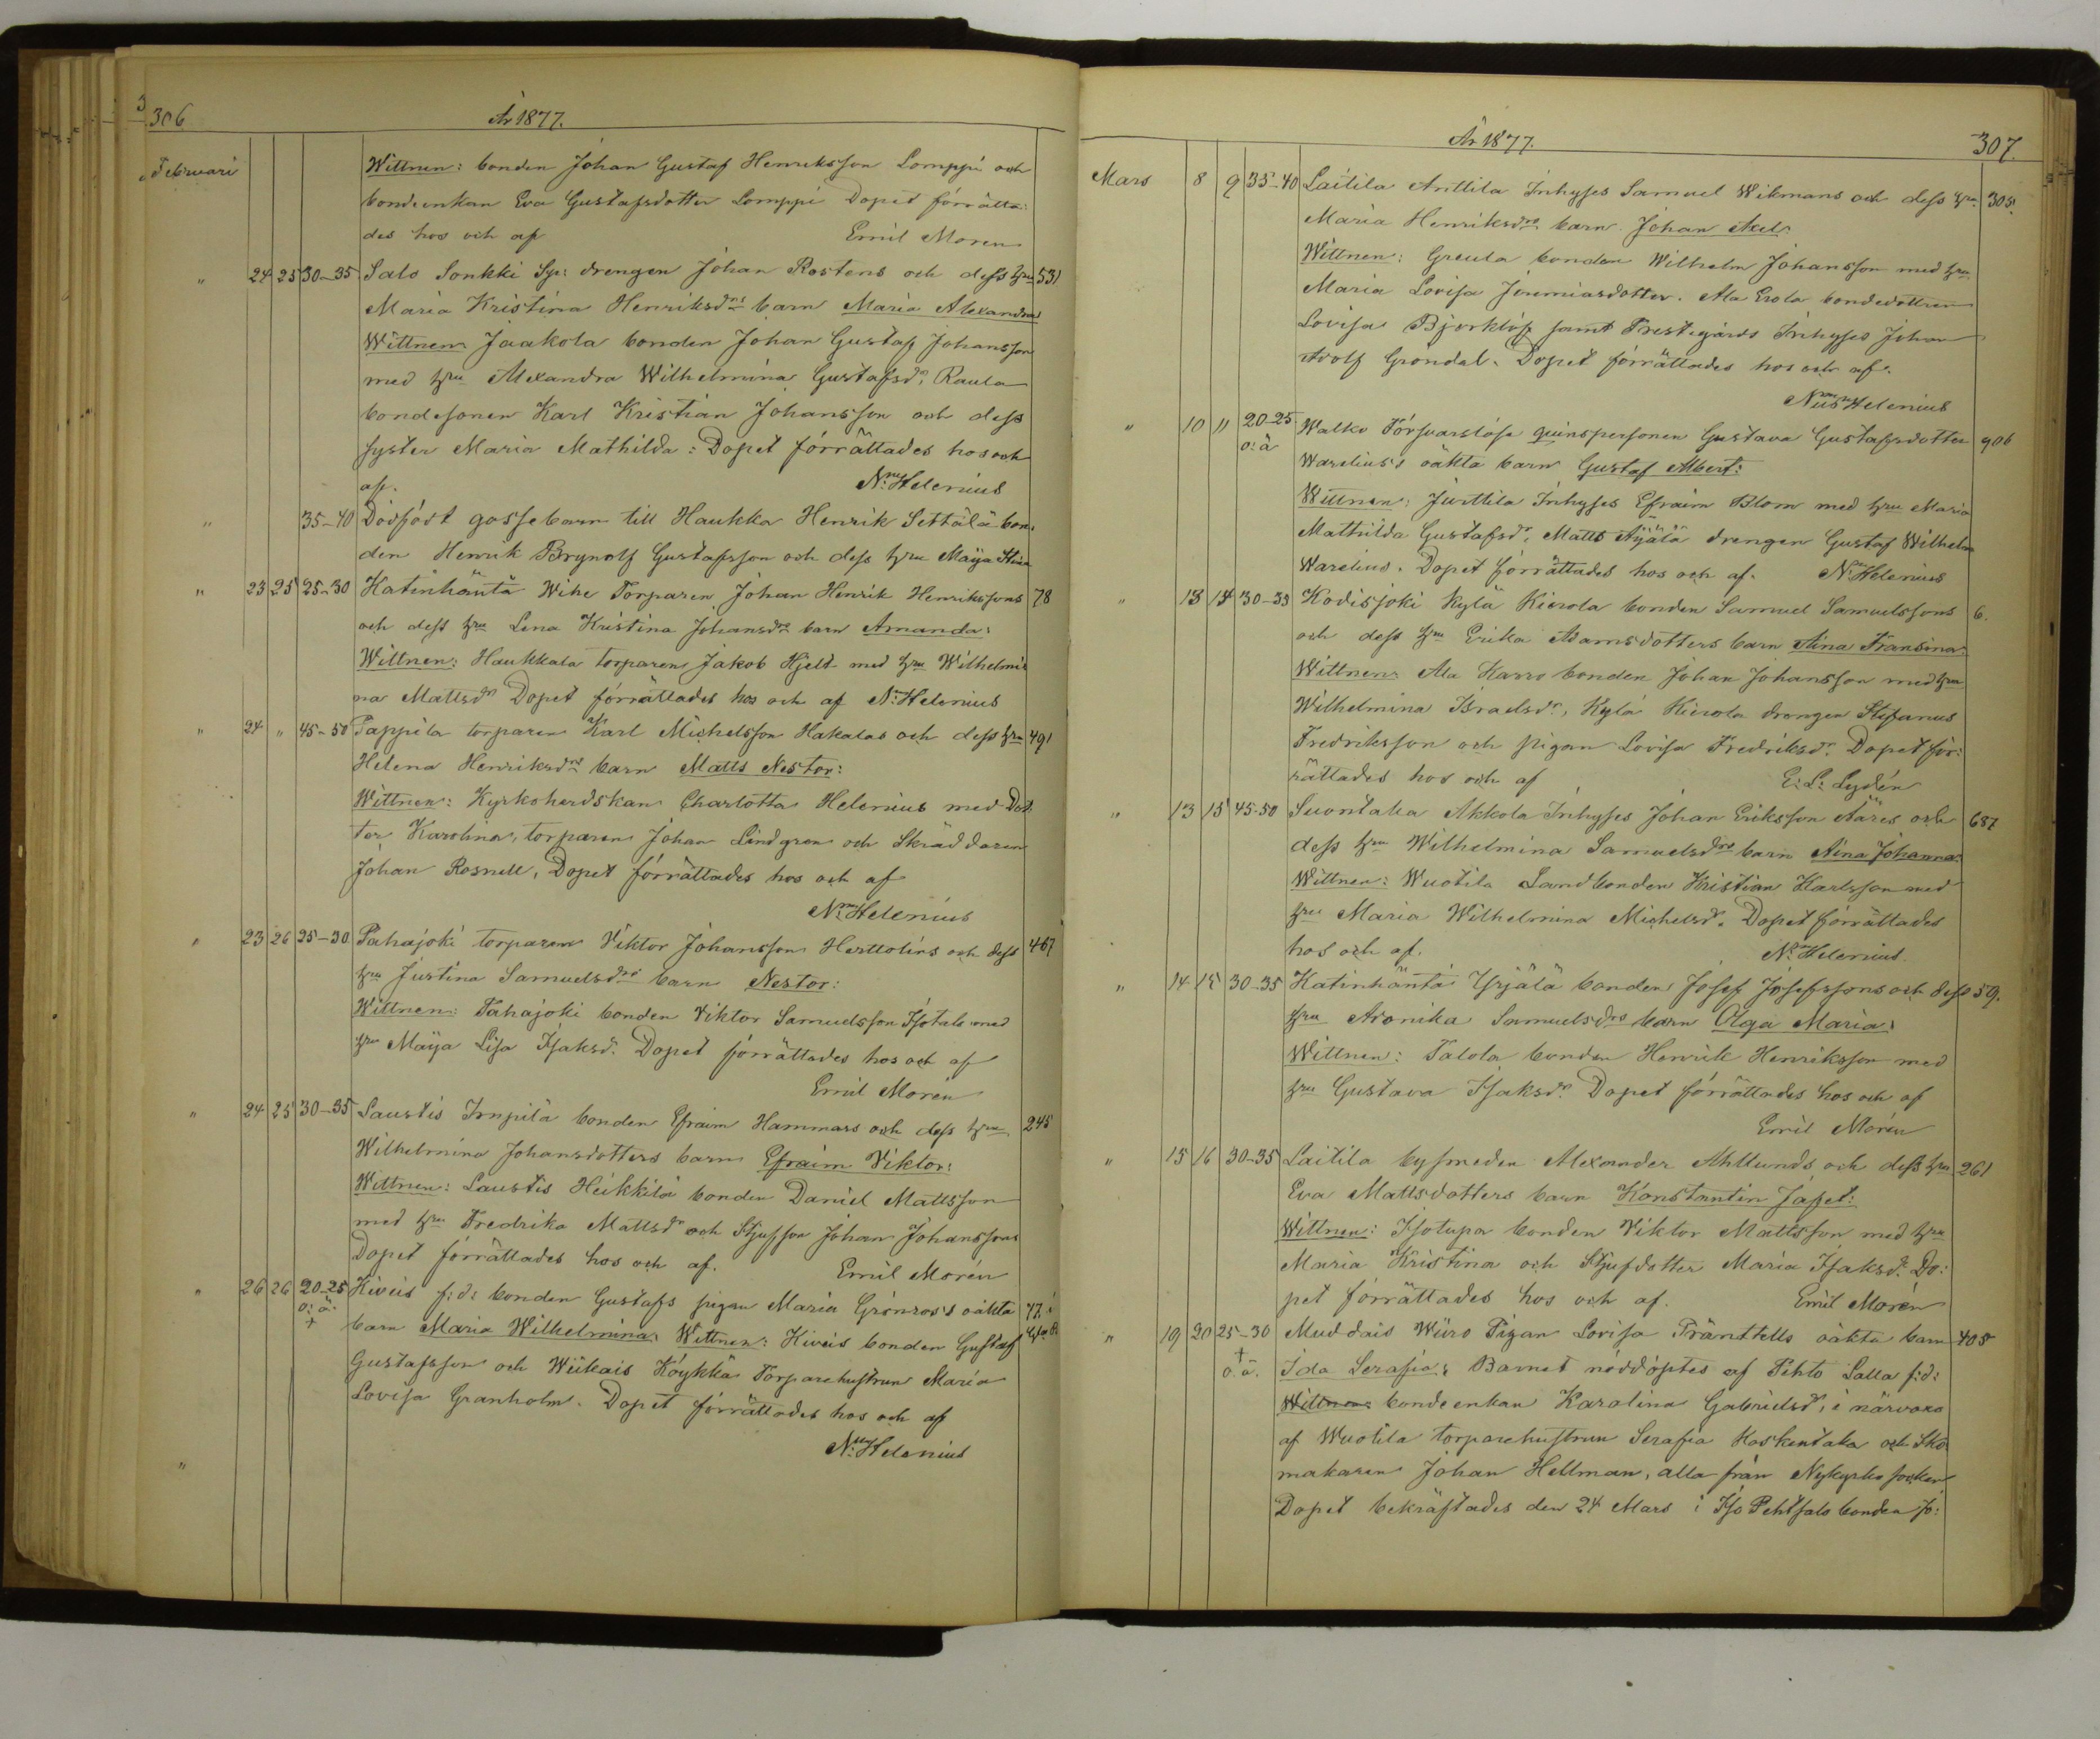 306
År 1877.
Februari
Wittnen: bonden Johan Gustaf Henriksson Lomppi och
bondeenkan Eva Gustafsdotter Lomppi Dopet förrätta-
des hos och af Emil Moren
" 24 25 30–35 Salo Sonkki Sp: drengen Johan Rostens och dess hru 531
Maria Kristina Henriksdrs barn Maria Alexandra
Wittnen Jaakola bonden Johan Gustaf Johansson
med hru Alexandra Wilhelmina Gustafsdr. Raula
bondesonen Karl Kristian Johansson och dess
syster Maria Mathilda: Dopet förrättades hos och
af. N: Helenius
" 35–40 Dödfödt gossebarn till Haukka Henrik Settälä bon-
den Henrik Brynolf Gustafsson och dess hru Maija Stina
" 23 25 25–30 Katinhäntä Wihe Torparen Johan Henrik Henrikssons 78
och dess hru Lena Kristina Johansdrs barn Amanda:
Wittnen: Haukkala torparen Jakob Hjelt med hru Wilhelmi-
na Mattsdr Dopet förrättades hos och af N: Helenius
" 24 " 45–50 Pappila torparen Karl Michelsson Hakalas och dess hru 491
Helena Henriksdrs barn Matts Nestor:
Wittnen: Kyrkoherdskan Charlotta Helenius med Dot-
ter Karolina, torparen Johan Lindgren och Skräddaren
Johan Rosnell, Dopet förrättades hos och af
N: Helenius
" 23 26 25–30 Pahajoki torparen Viktor Johansson Herttolins och dess 467
hru Justina Samuelsdrs barn Nestor:
Wittnen: Pahajoki bonden Viktor Samuelsson Isotalo med
hru Maija Lisa Isaksdr. Dopet förrättades hos och af
Emil Morén
" 24 25 30–35 Laustis Impilä bonden Efraim Hammars och dess hru 245
Wilhelmina Johansdotters barn Efraim Viktor:
Wittnen: Laustis Heikkilä bonden Daniel Mattsson
med hru Fredrika Mattsdr och Styfson Johan Johansson
Dopet förrättades hos och af. Emil Morén
" 26 26 20–25 Kiveis f:d: bonden Gustafs pigan Maria Grönros's oäkta 47.
o: ä: + barn Maria Wilhelmina: Wittnen: Kiveis bonden Gustaf
Gustafsson och Wiikais Köykkä Torparehustrun Maria
Lovisa Granholm. Dopet förrättades hos och af
N: Helenius
"
År 1877.
307.
Mars 8 9 35–40 Laitila Anttila Inhyses Samuel Wikmans och dess hru 305.
Maria Henriksdrs barn Johan Axel:
Wittnen: Greula bonden Wilhelm Johansson med hru
Maria Lovisa Jeremiasdotter. Ala Erola bondedottren
Lovisa Björklöf samt Prestegårds Inhyses Johan
Adolf Grondal. Dopet förrättades hos och af.
Nils Helenius
" 10 11 20–25 Walko Försvarslösa qvinspersonen Gustava Gustafsdotter 906
o: ä Warelius's oäkta barn Gustaf Albert:
Wittnen: Junttila Inhyses Efraim Blom med hru Maria
Mathilda Gustafsdr, Matts Äijälä drengen Gustaf Wilhelm
Warelius. Dopet förrättades hos och af. N: Helenius
" 13 14 30–33 Kodisjoki Kylä Kierola bonden Samuel Samuelssons 6.
och dess hru Erika Adamsdotters barn Aina Fransina:
Wittnen: Ala Harro bonden Johan Johansson med hru
Wilhelmina Israelsdr, Kylä Kierola drengen Stefanus
Fredriksson och pigan Lovisa Fredriksdr. Dopet för-
rättades hos och af E: L: Lydén
" 13 15 45–50 Suontaka Akkola Inhyses Johan Eriksson Aäres och 687
dess hru Wilhelmina Samuelsdrs barn Nina Johanna:
Wittnen: Wuotila Landbonden Kristian Karlsson med
hru Maria Wilhelmina Michelsdr. Dopet förrättades
hos och af. N: Helenius.
" 14 15 30–35 Katinhäntä Yrjälä bonden Josef Josefssons och dess 59.
hru Aronika Samuelsdrs barn Olga Maria:
Wittnen: Talola bonden Henrik Henriksson med
hru Gustava Isaksdr. Dopet förrättades hos och af
Emil Morén
" 15 16 30–35 Laitila bysmeden Alexander Ahllunds och dess hru 261
Eva Mattsdotters barn Konstantin Jafet:
Wittnen: Isotupa bonden Viktor Mattsson med hru
Maria Kristina och Styfdotter Maria Isaksdr. Do-
pet förrättades hos och af. Emil Morén
" 19 20 25–30 Muddais Wiiro Pigan Lovisa Fränttells oäkta barn 405
+ o. ä. Ida Serafia: Barnet nöddöptes af Pehto Salla f:d:
Wittnen bondeenkan Karolina Gabrielsdr, i närvaro
af Wuotila torparehustrun Serafia Koskentaka och Sko-
makaren Johan Hellman, alla från Nykyrko socken
Dopet bekräftades den 24 Mars i Iso Pehtsalo bonden Jo: